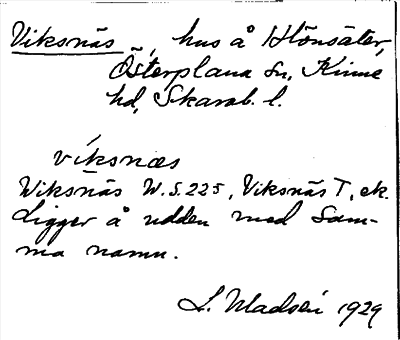 Viksnäs, hus å Hönsäter,
Österplana sn, Kinne
hd, Skarab. l.
víksnæs
Wiksnäs W.S. 225, Viksnäs T, ek.
Ligger å udden med sam-
ma namn.
L. Madsén 1929